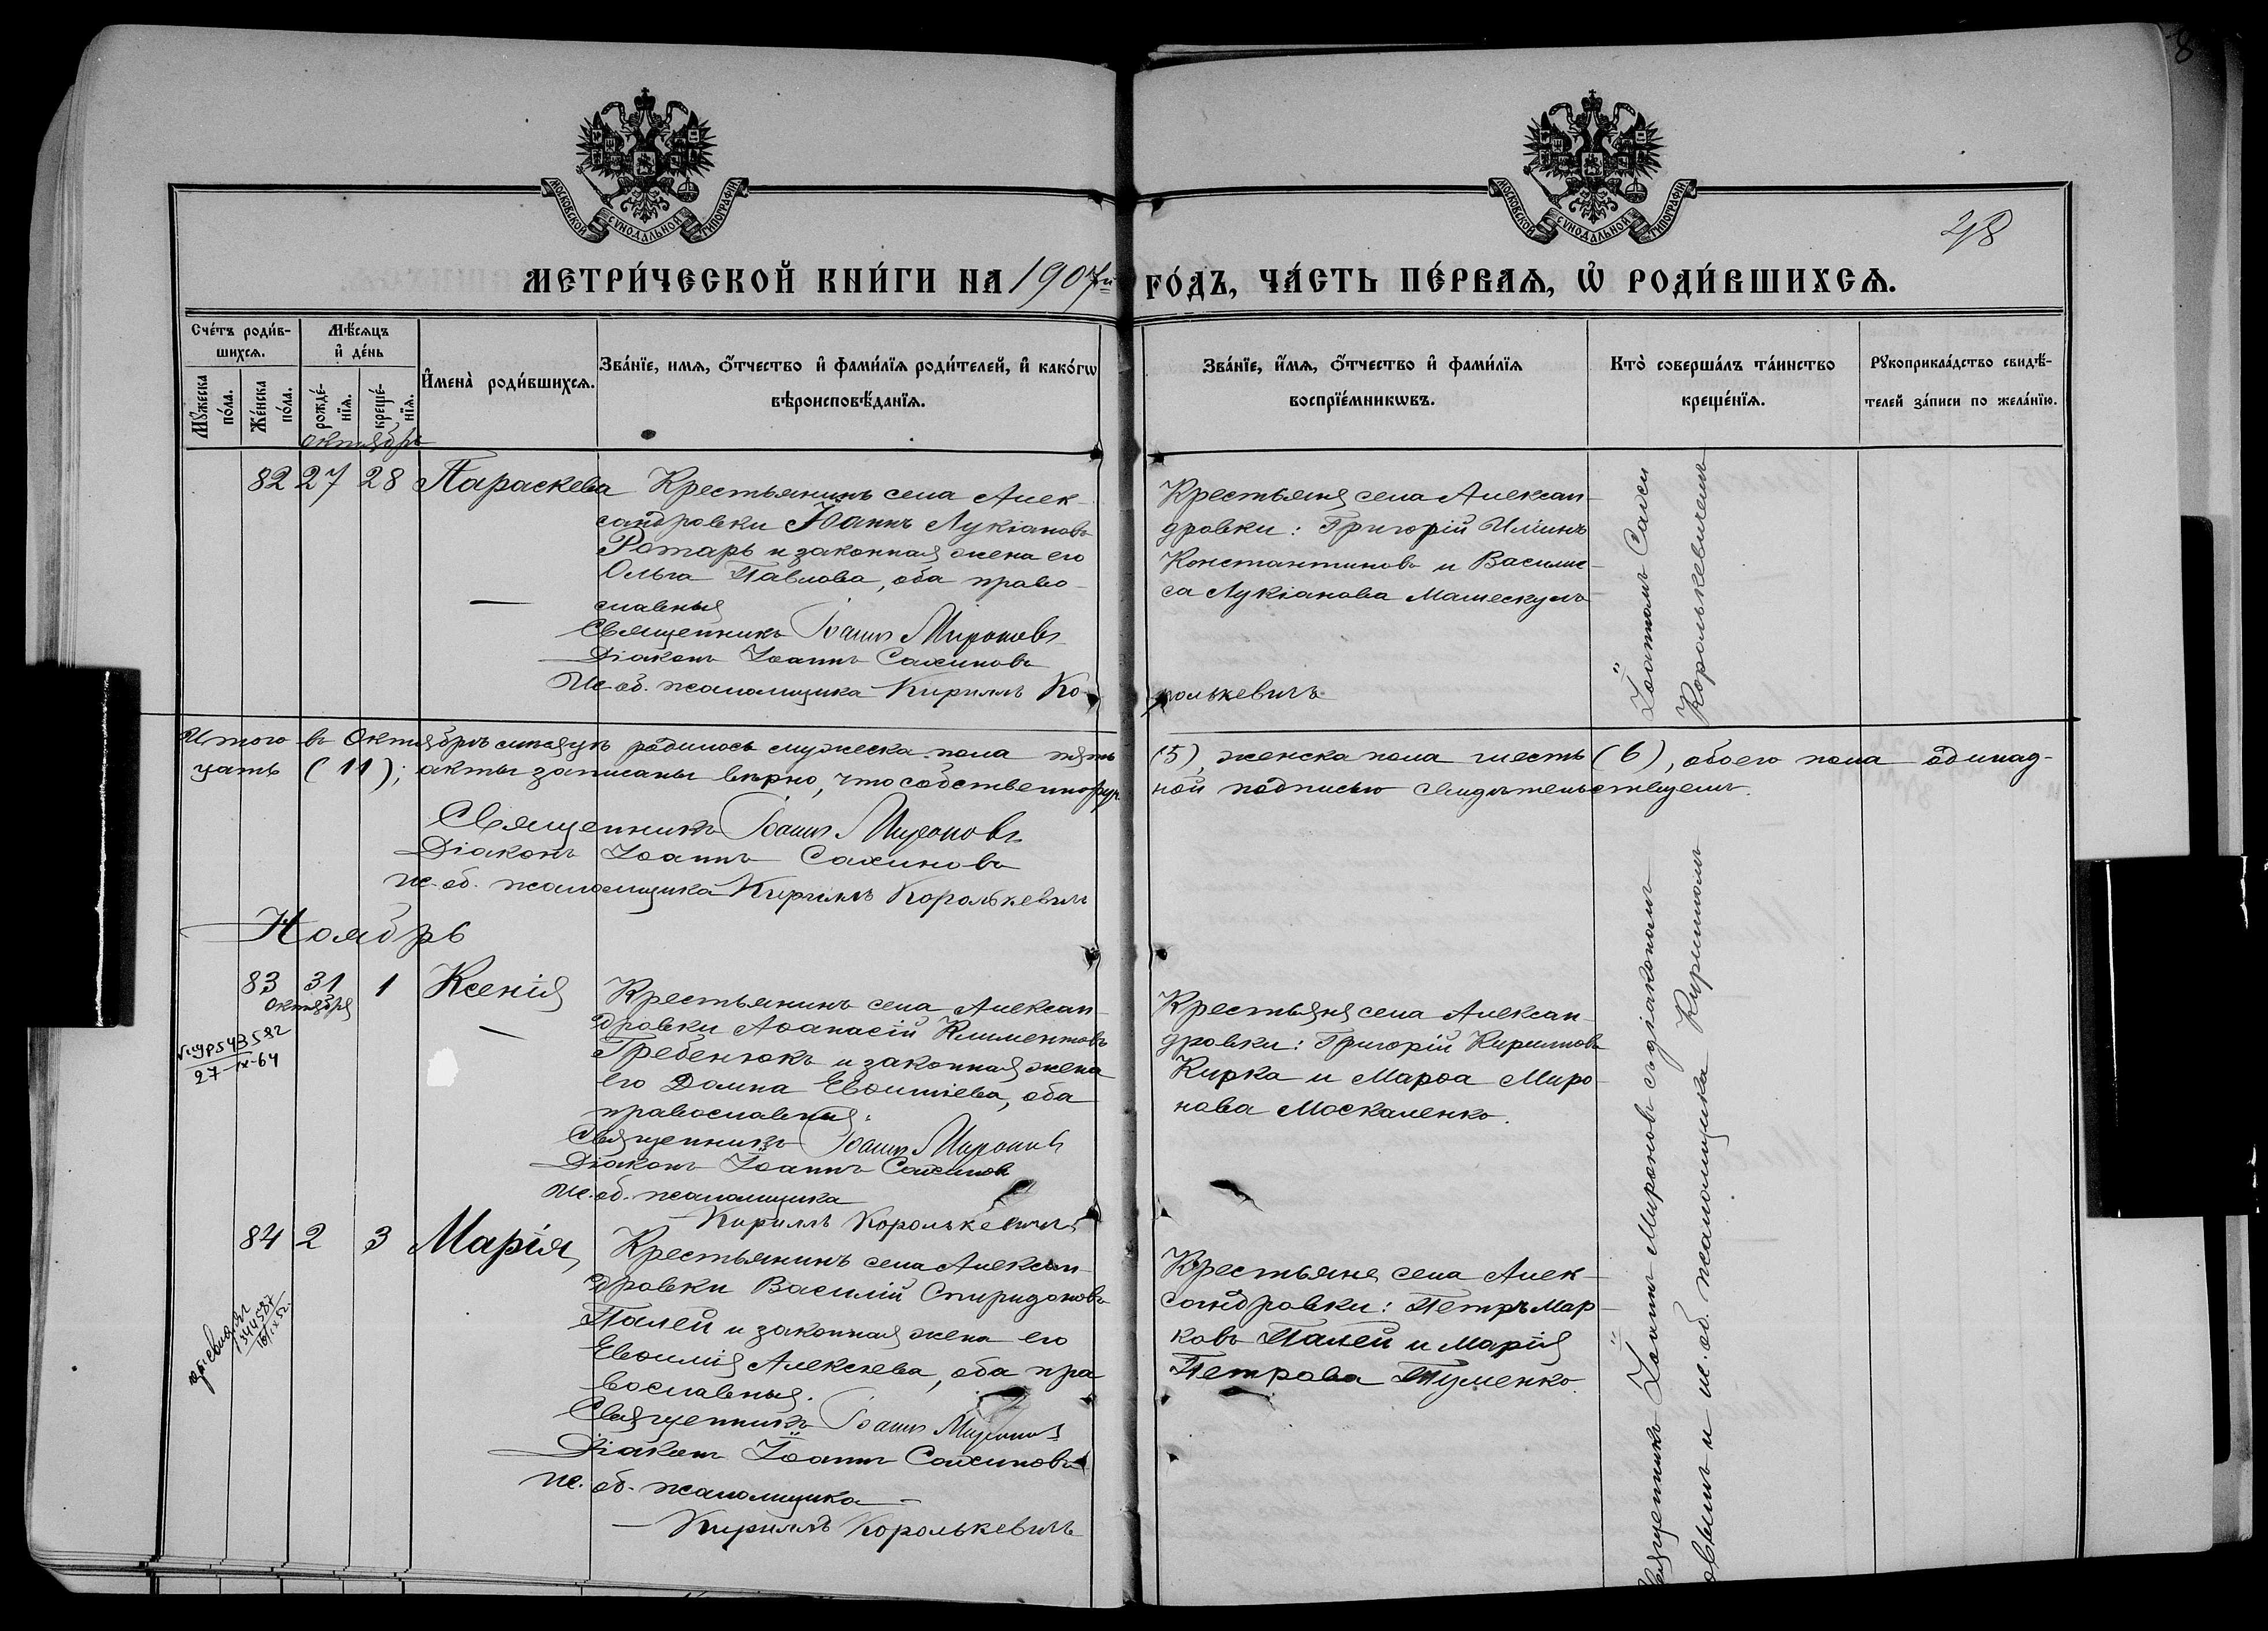 8
МОСКОВСКОЙ СУНОДАЛЬНОЙ ТИПОГРАФІИ
МОСКОВСКОЙ СУНОДАЛЬНОЙ ТИПОГРАФІИ
28
МЕТРИ́ЧЕСКОЙ КНИ́ГИ НА 1907й ГО́ДЪ, ЧА́СТЬ ПЕ́РВАѦ, Ѡ҆ РОДИ́ВШИХСѦ.
Сче́тъ роди́в-
шихсѧ.
Мꙋ́жеска
по́ла.
Же́нска
по́ла.
Мѣ́сѧцъ
и҆ де́нь
рожде́-
нїѧ.
креще́-
нїѧ.
И҆мена̀ роди́вшихсѧ.
Зва́нїе, имѧ, ѻ҆́тчество и҆ фами́лїѧ роди́телей, и҆ како́гѡ
вѣроисповѣ́данїѧ.
Зва́нїе, и҆́мѧ, ѻ҆́тчество и҆ фами́лїѧ
воспрїе́мникѡвъ.
Кто̀ соверша́лъ та́инство
креще́нїѧ.
Рꙋкоприкла́дство свидѣ́-
телей за́писи по жела́нїю.
октябрь
82 27 28 Параскева
Крестьянинъ села Алек-
сандровки Іоаннъ Лукіановъ
Ротарь и законная жена его
Ольга Павлова, оба право-
славныя
Священникъ Іоаннъ Мироновъ
Діаконъ Іоаннъ Сахиновъ
Ис. об. псаломщика Кириллъ Ко-
ролькевичъ
Крестьяня села Алексан-
дровки: Григорій Иліинъ
Константиновъ и Васили-
са Лукіанова Машескулъ
Іоанномъ Сахи
Королькевичемъ
Итого въ Октябрѣ мѣсяцѣ родилось мужеска пола пять (5), женска пола шесть (6), обоего пола одинад-
цать (11); акты записаны вѣрно, что собственноруч ной подписью свидѣтельствуемъ.
Священникъ Іоаннъ Мироновъ
Діаконъ Іоаннъ Сахиновъ
Ис. об. псаломщика Кириллъ Королькевичъ
Ноябрь
83 31 1 Ксенія
октября
27 IX-64
Крестьянинъ села Алексан-
дровки Аѳанасій Климентовъ
Гребенюкъ и законная жена
его Домна Евѳиміева, оба
православныя.
Священникъ Іоаннъ Мироновъ
Діаконъ Іоаннъ Сахиновъ
Ис. об. псаломщика
Кириллъ Королькевичъ
Крестьяня села Алексан-
дровки: Григорій Кирилловъ
Кирка и Марѳа Миро-
нова Москаленко.
84 2 3 Марія
Крестьянинъ села Алексан-
дровки Василій Спиридоновъ
Палей и законная жена его
Евѳимія Алексѣева, оба пра
вославныя.
Священникъ Іоаннъ Мироновъ
Діаконъ Іоаннъ Сахиновъ
Ис. об. псаломщика
Кириллъ Королькевичъ
Крестьяне села Алек-
сандровки: Петръ Мар-
ковъ Палей и Марія
Петрова Туменко.
Священникъ Іоаннъ Мироновъ съ діакономъ
овымъ и ис. об. псаломщика Кирилломъ